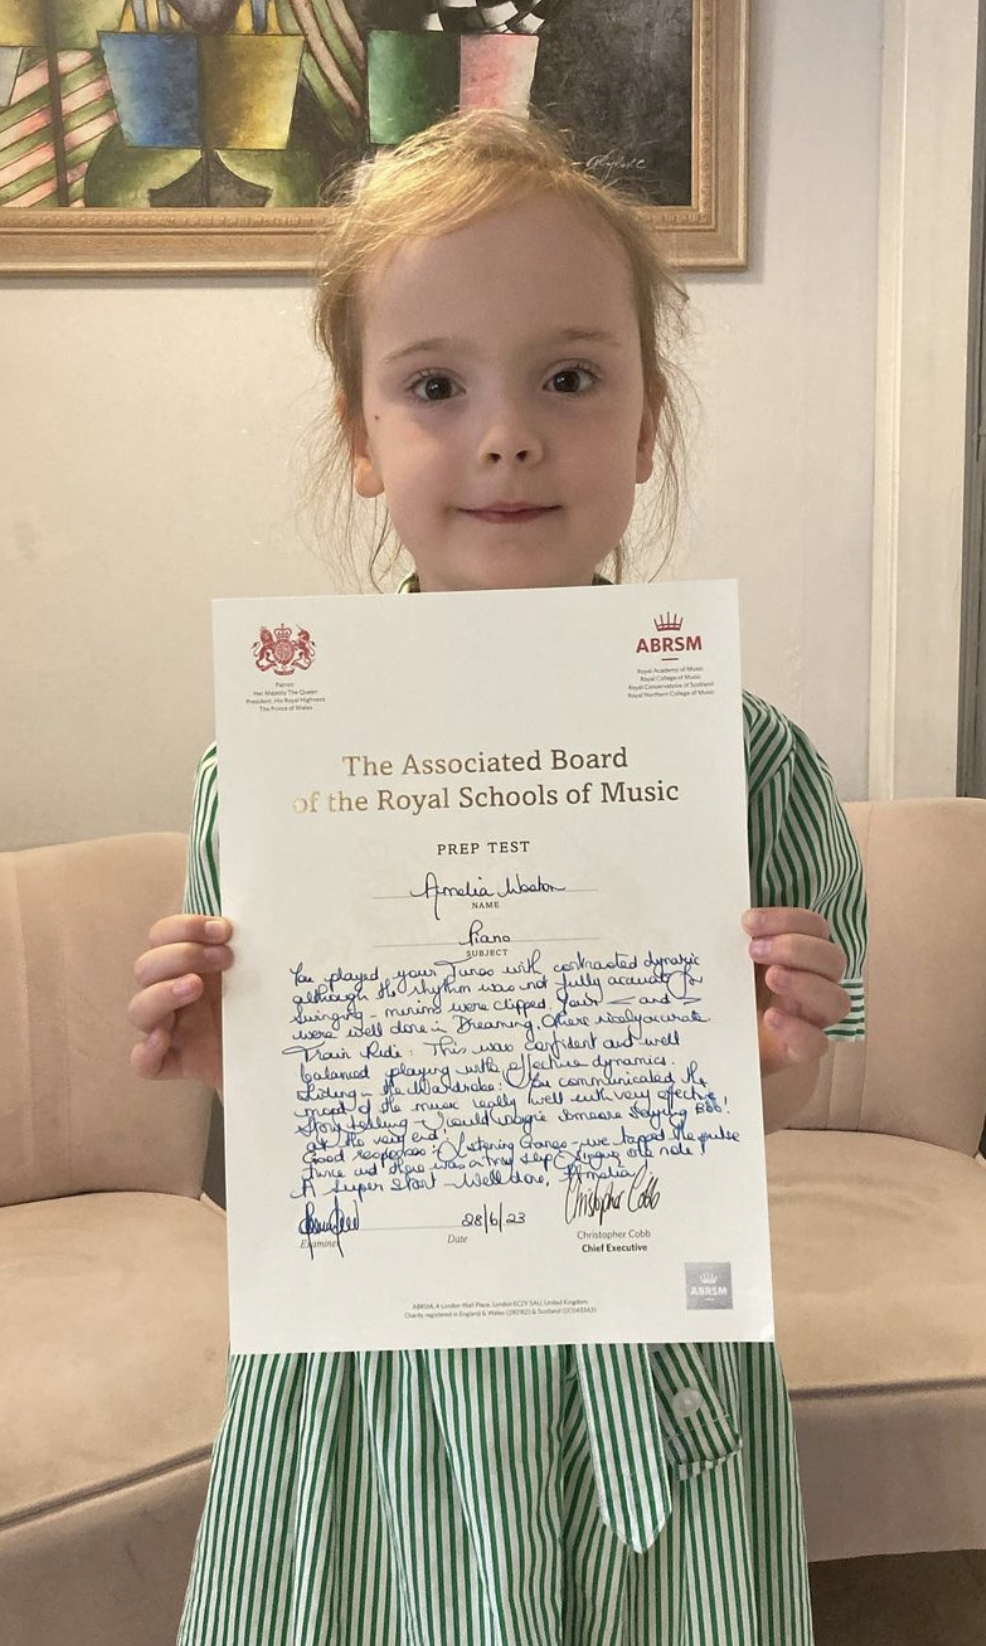 Patron
Her Majesty The Queen
President: His Royal Highness
The Prince of Wales
ABRSM
Royal Academy of Music
Royal College of Music
Royal Conservatoire of Scotland
Royal Northern College of Music
The Associated Board
of the Royal Schools of Music
PREP TEST
Amelia Weston
NAME
Piano
SUBJECT
You played your Tunes with contrasted dynamic
although the rhythm was not fully accurate for
Swinging - minims were clipped. Your < and >
were well done in Dreaming. Others nicely accurate
Train Ride: This was confident and well
balanced playing with effective dynamics.
Hiding in the Wardrobe: You communicated the
mood of the music really well with very effective
Story telling - I could imagine someone saying Boo!
at the very end!
Good responses in Listening Games - we tapped the pulse
twice and there was a tiny slip singing one note!
A super start - Well done, Amelia!
28/6/23
Examiner
Date
Christopher Cobb
Christopher Cobb
Chief Executive
ABRSM
ABRSM, 4 London Wall Place, London EC2Y 5AU, United Kingdom
Charity registered in England & Wales (292182) & Scotland (SC043343)